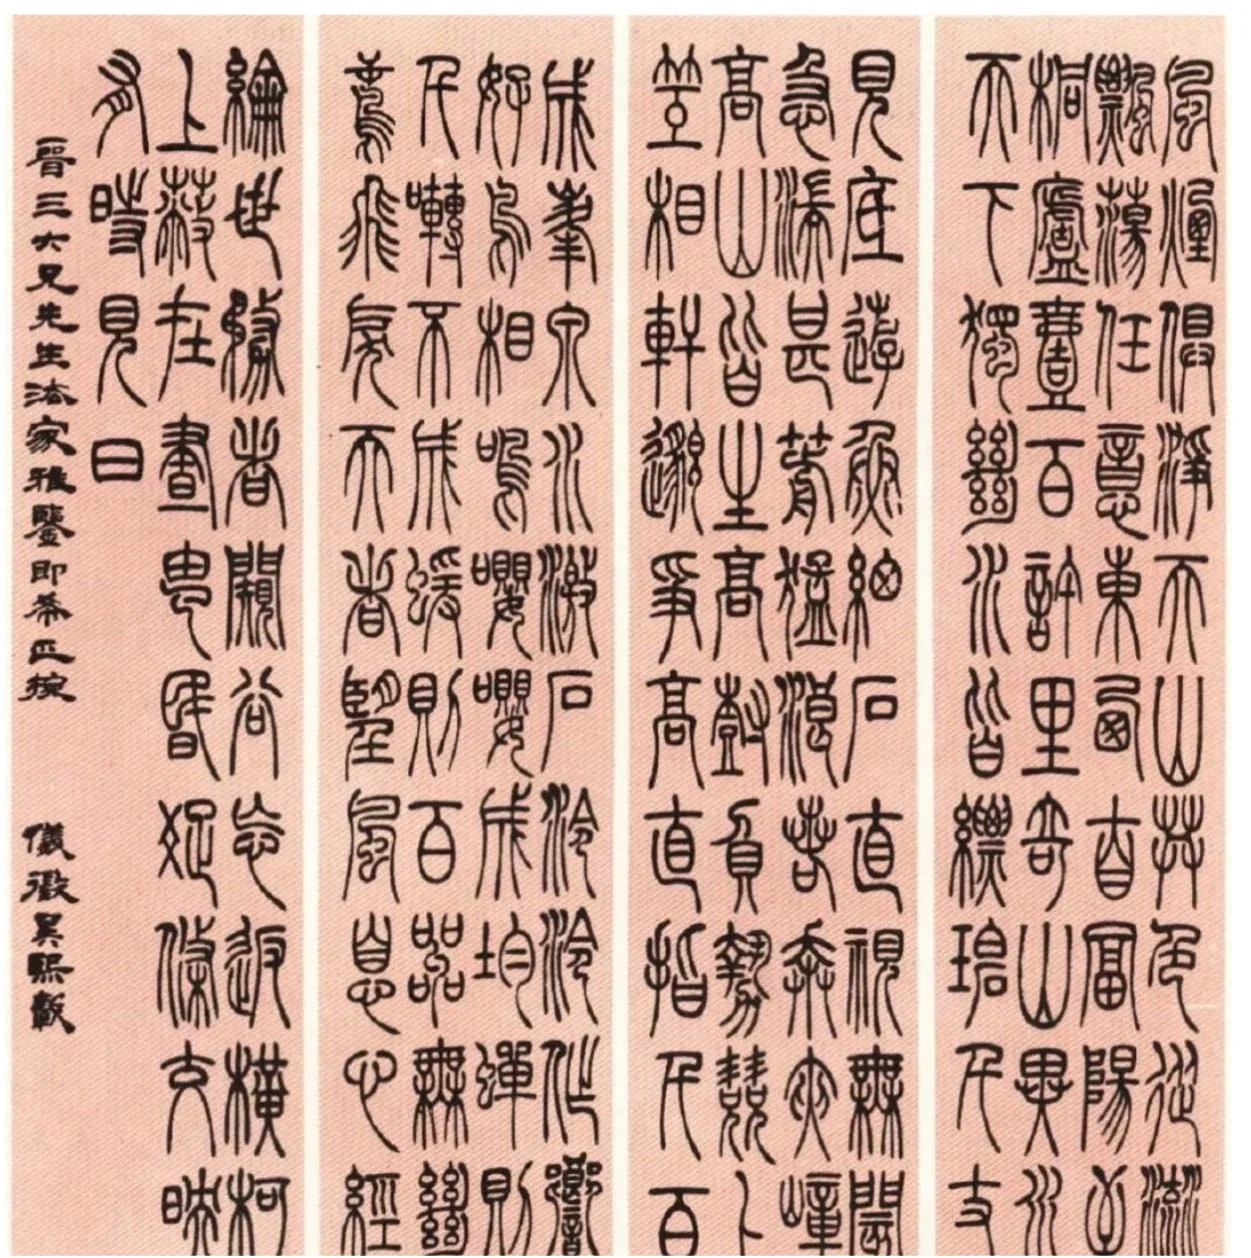 風煙俱淨天山共色從流
飄蕩任意東西自富陽至
桐廬壹百許里奇山異水
天下獨絕水皆縹碧千丈
見底遊魚細石直視無閡
急湍甚箭猛浪若奔夾嶂
高山皆生高樹負勢競上
互相軒邈爭高直指千百
成峯泉水激石泠泠作響
好鳥相鳴嚶嚶成均蟬則
千囀不成蝯則百嘂無絕
鳶飛戾天者望風息心經
綸世務者闚谷忘返橫柯
上蔽在晝昏疏條交映
有時見日
晉三六兄先生法家雅鑒即希正捥
儀徵吳熙載